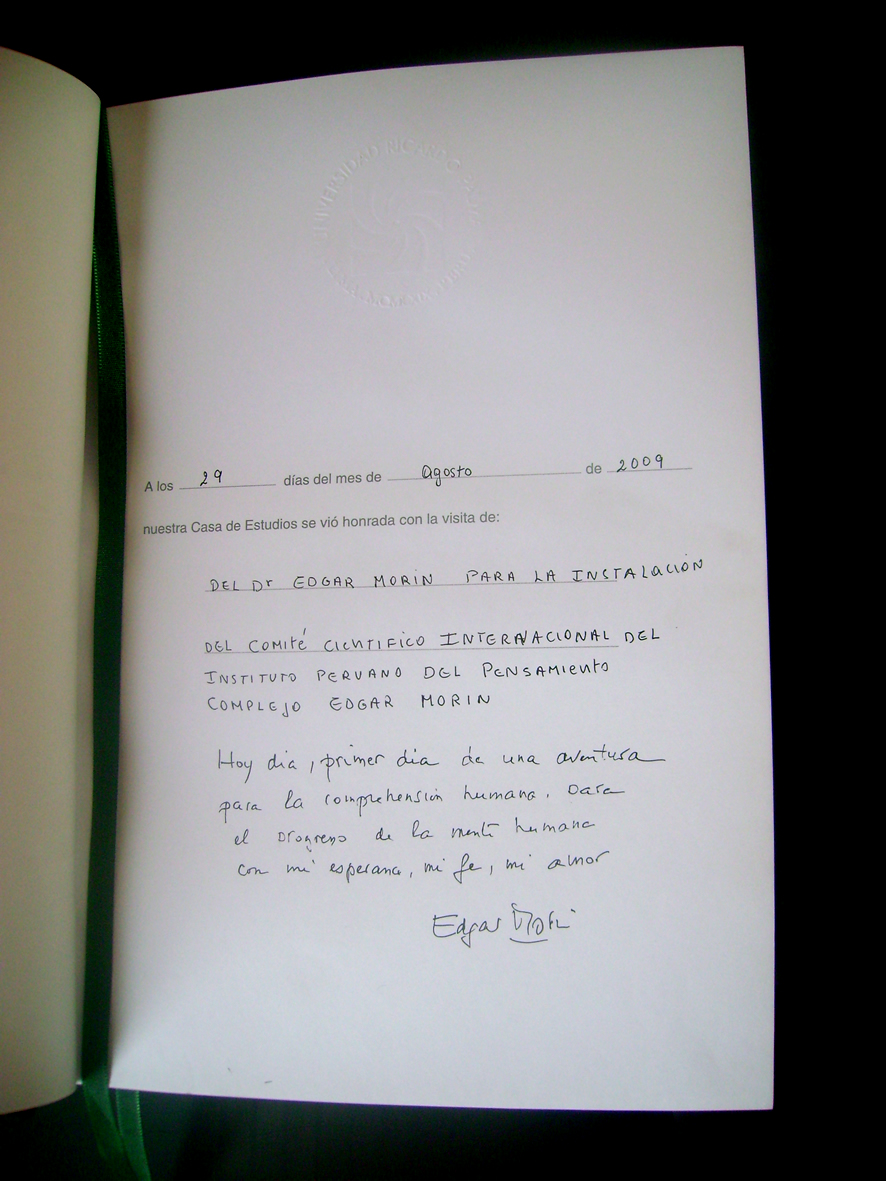 UNIVERSIDAD RICARDO PALMA
A los 29 días del mes de Agosto de 2009
nuestra Casa de Estudios se vió honrada con la visita de:
DEL Dr EDGAR MORIN PARA LA INSTALACIÓN
DEL COMITÉ CIENTIFICO INTERNACIONAL DEL
INSTITUTO PERUANO DEL PENSAMIENTO
COMPLEJO EDGAR MORIN
Hoy dia, primer dia de una aventura
para la comprehensión humana. Para
el progreso de la mente humana
con mi esperana, mi fe, mi amor
Edgar Morin